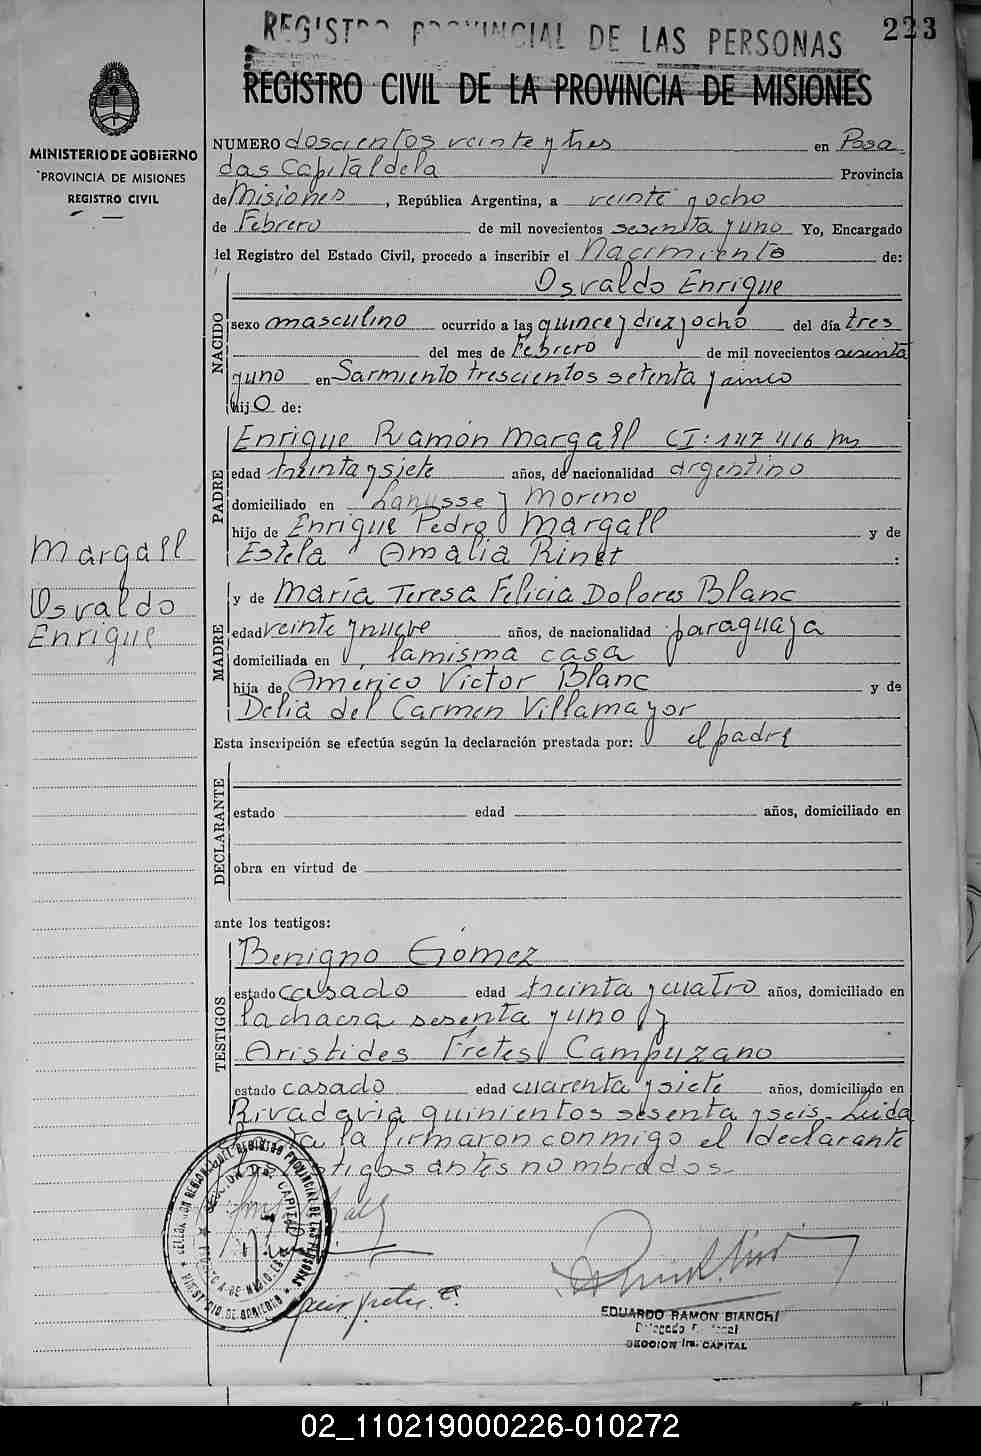 REGISTRO PROVINCIAL DE LAS PERSONAS
223
REGISTRO CIVIL DE LA PROVINCIA DE MISIONES
MINISTERIO DE GOBIERNO
PROVINCIA DE MISIONES
REGISTRO CIVIL
NUMERO doscientos veinte y tres en Posa
das Capital de la Provincia
de Misiones, República Argentina, a veinte y ocho
de Febrero de mil novecientos sesenta y uno Yo, Encargado
del Registro del Estado Civil, procedo a inscribir el Nacimiento de:
Osvaldo Enrique
NACIDO
sexo masculino ocurrido a las quince y diez y ocho del día tres
del mes de Febrero de mil novecientos sesenta
y uno en Sarmiento trescientos setenta y cinco
hijo de:
PADRE
Enrique Ramón Margall CI: 147 416 M
edad treinta y siete años, de nacionalidad argentino
domiciliado en Lanusse y Moreno
hijo de Enrique Pedro Margall y de
Estela Amalia Rinet
Margall
Osvaldo
Enrique
MADRE
y de María Teresa Felicia Dolores Blanc
edad veinte y nueve años, de nacionalidad paraguaya
domiciliada en la misma casa
hija de Americo Victor Blanc y de
Delia del Carmen Villamayor
Esta inscripción se efectúa según la declaración prestada por: el padre
DECLARANTE
estado edad años, domiciliado en
obra en virtud de
ante los testigos:
TESTIGOS
Benigno Gómez
estado casado edad treinta y cuatro años, domiciliado en
la chacra sesenta y uno y
Aristides Fretes Campuzano
estado casado edad cuarenta y siete años, domiciliado en
Rivadavia quinientos sesenta y seis. Leida
la firmaron conmigo el declarante
antes nombrados.
EDUARDO RAMON BIANCHI
SECCION 1ra. CAPITAL
02_110219000226-010272